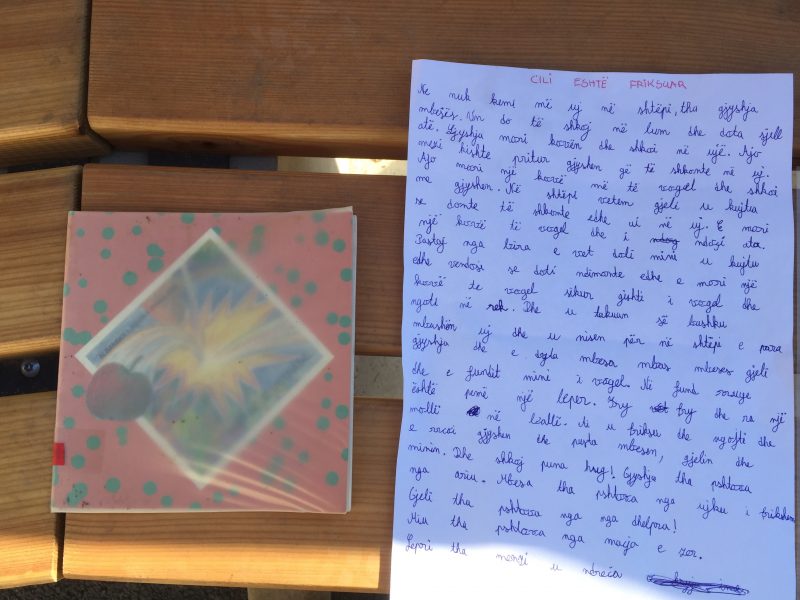 CILI ESHTË FRIKSUAR
Ne nuk kemi më uj në shtëpi, tha gjyshja
mbesës. Un do të shkoj në lum dhe dota sjell
atë. Gjyshja mori kovën dhe shkoi në ujë. Ajo
mezi kishte pritur gjyshen që të shkonte në uj.
Ajo mori një kovë më të vogël dhe shkoi
me gjyshen. Në shtëpi vetem gjeli u kujtua
se donte të shkonte edhe ai në uj. E mori
një kovë të vogel dhe i ndoqi ata.
Pastaj nga vira e vet doli mini u kujtu
edhe vendosi se doti ndimonte edhe e mori një
kovë te vogel sikur gishti i vogel dhe
ngoti në rek. Dhe u takuan së bashku
mbushën uj dhe u nisen për në shtëpi e para
gjyshja dhe e dyjta mbesa mbas mbeses gjeli
dhe e fundit mini i vogel. Në fund
është penë një leper. Fry fry dhe ra një
mollë në ballë. Ai u friksu dhe ngofti dhe
e rrxoi gjyshen dhe pasta mbesen, gjelin dhe
minin. Dhe shkoj puna hug! Gjyshja tha pshtova
nga ariu. Mbesa tha pshtova nga ujku i frikshem
Gjeli tha pshtova nga nga dhelpra!
Miu tha pshtova nga macja e zez.
Lepri tha mezi u ndreça